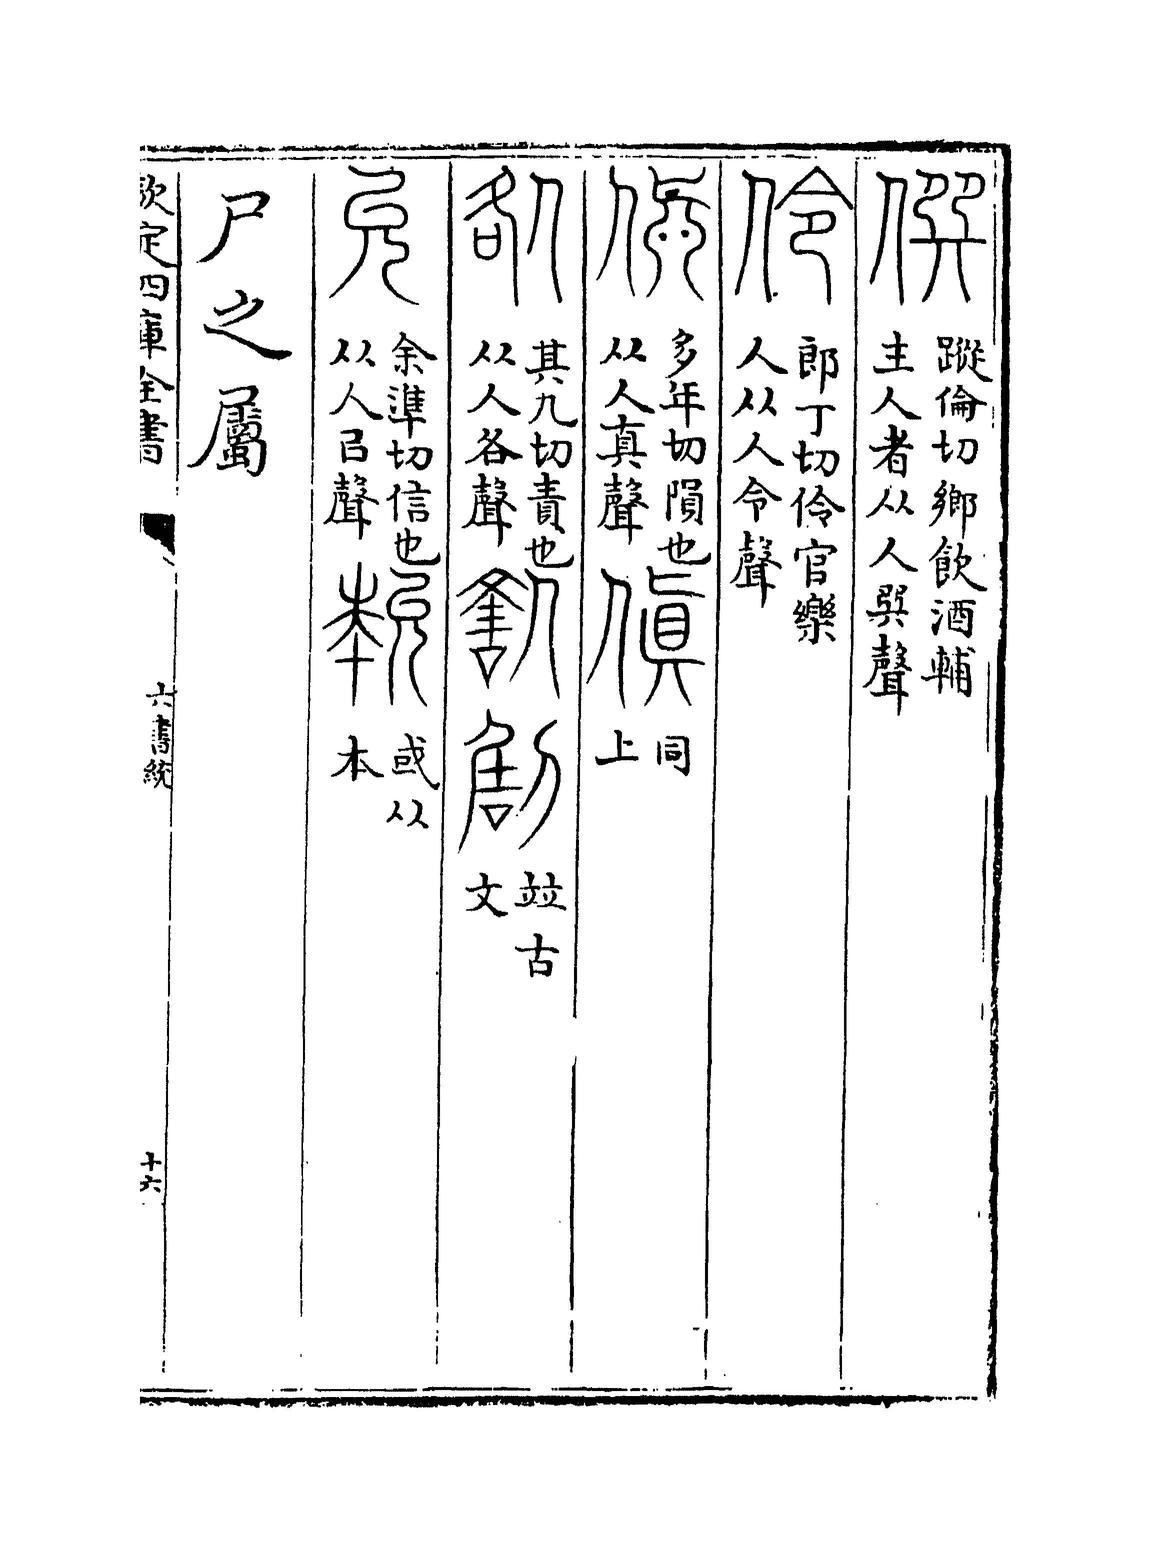 僎
蹤倫切鄉飲酒輔
主人者从人巽聲
伶
郎丁切伶官樂
人从人令聲
傎
多年切隕也
从人真聲
傎
同
上
咎
其九切責也
从人各聲
竝古
文
允
余準切信也
从人㠯聲
或从
本
尸之屬
欽定四庫全書
六書統
十六